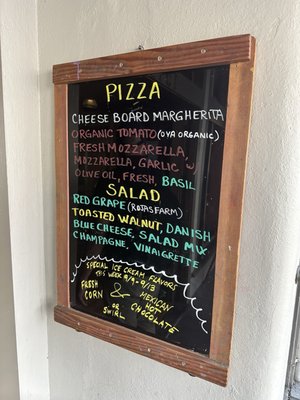 PIZZA
CHEESE BOARD MARGHERITA
ORGANIC TOMATO (OVA ORGANIC)
FRESH MOZZARELLA,
MOZZARELLA, GARLIC w
OLIVE OIL, FRESH, BASIL
SALAD
RED GRAPE (ROJAS FARM)
TOASTED WALNUT, DANISH
BLUE CHEESE, SALAD MIX
CHAMPAGNE, VINAIGRETTE
SPECIAL ICE CREAM FLAVORS
THIS WEEK 9/9-9/13
FRESH CORN & MEXICAN HOT CHOCOLATE
OR SWIRL